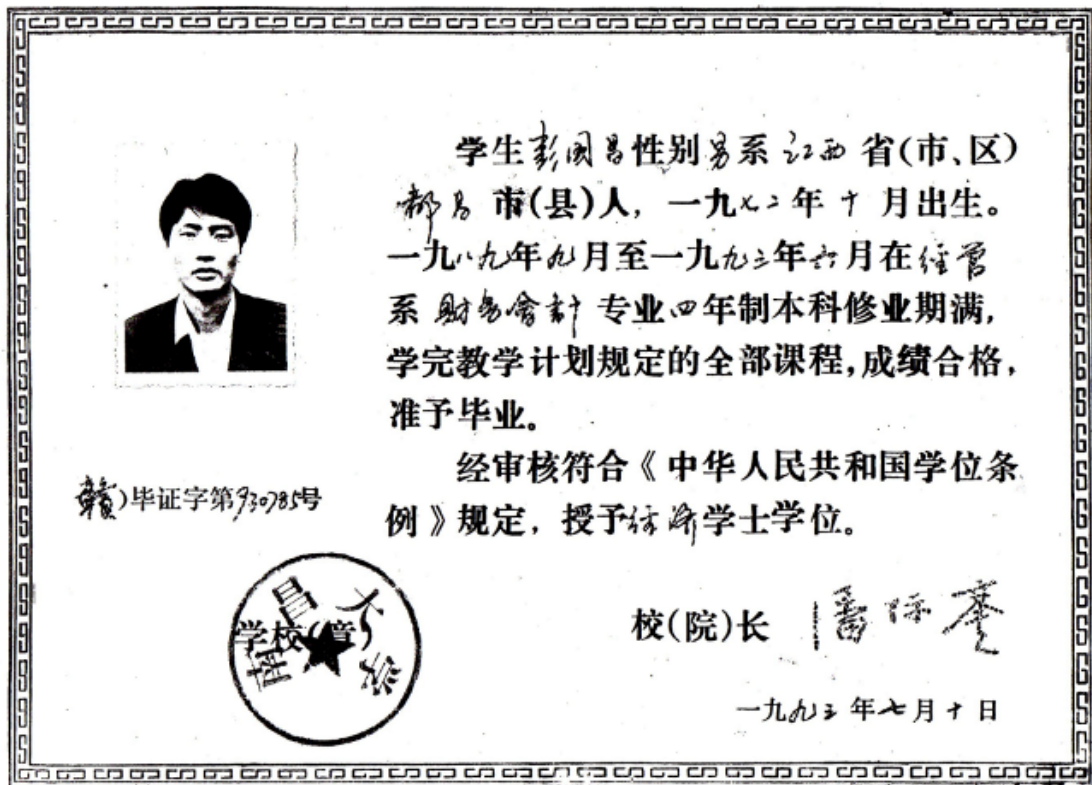 学生彭国昌性别男系江西省(市、区)
都昌市(县)人，一九七二年十月出生。
一九八九年九月至一九九三年六月在经管
系财务會计专业四年制本科修业期满，
学完教学计划规定的全部课程，成绩合格，
准予毕业。
经审核符合《中华人民共和国学位条
例》规定，授予经济学士学位。
(赣)毕证字第930785号
南昌大学
学校(章)
校(院)长 潘际銮
一九九三年七月十日